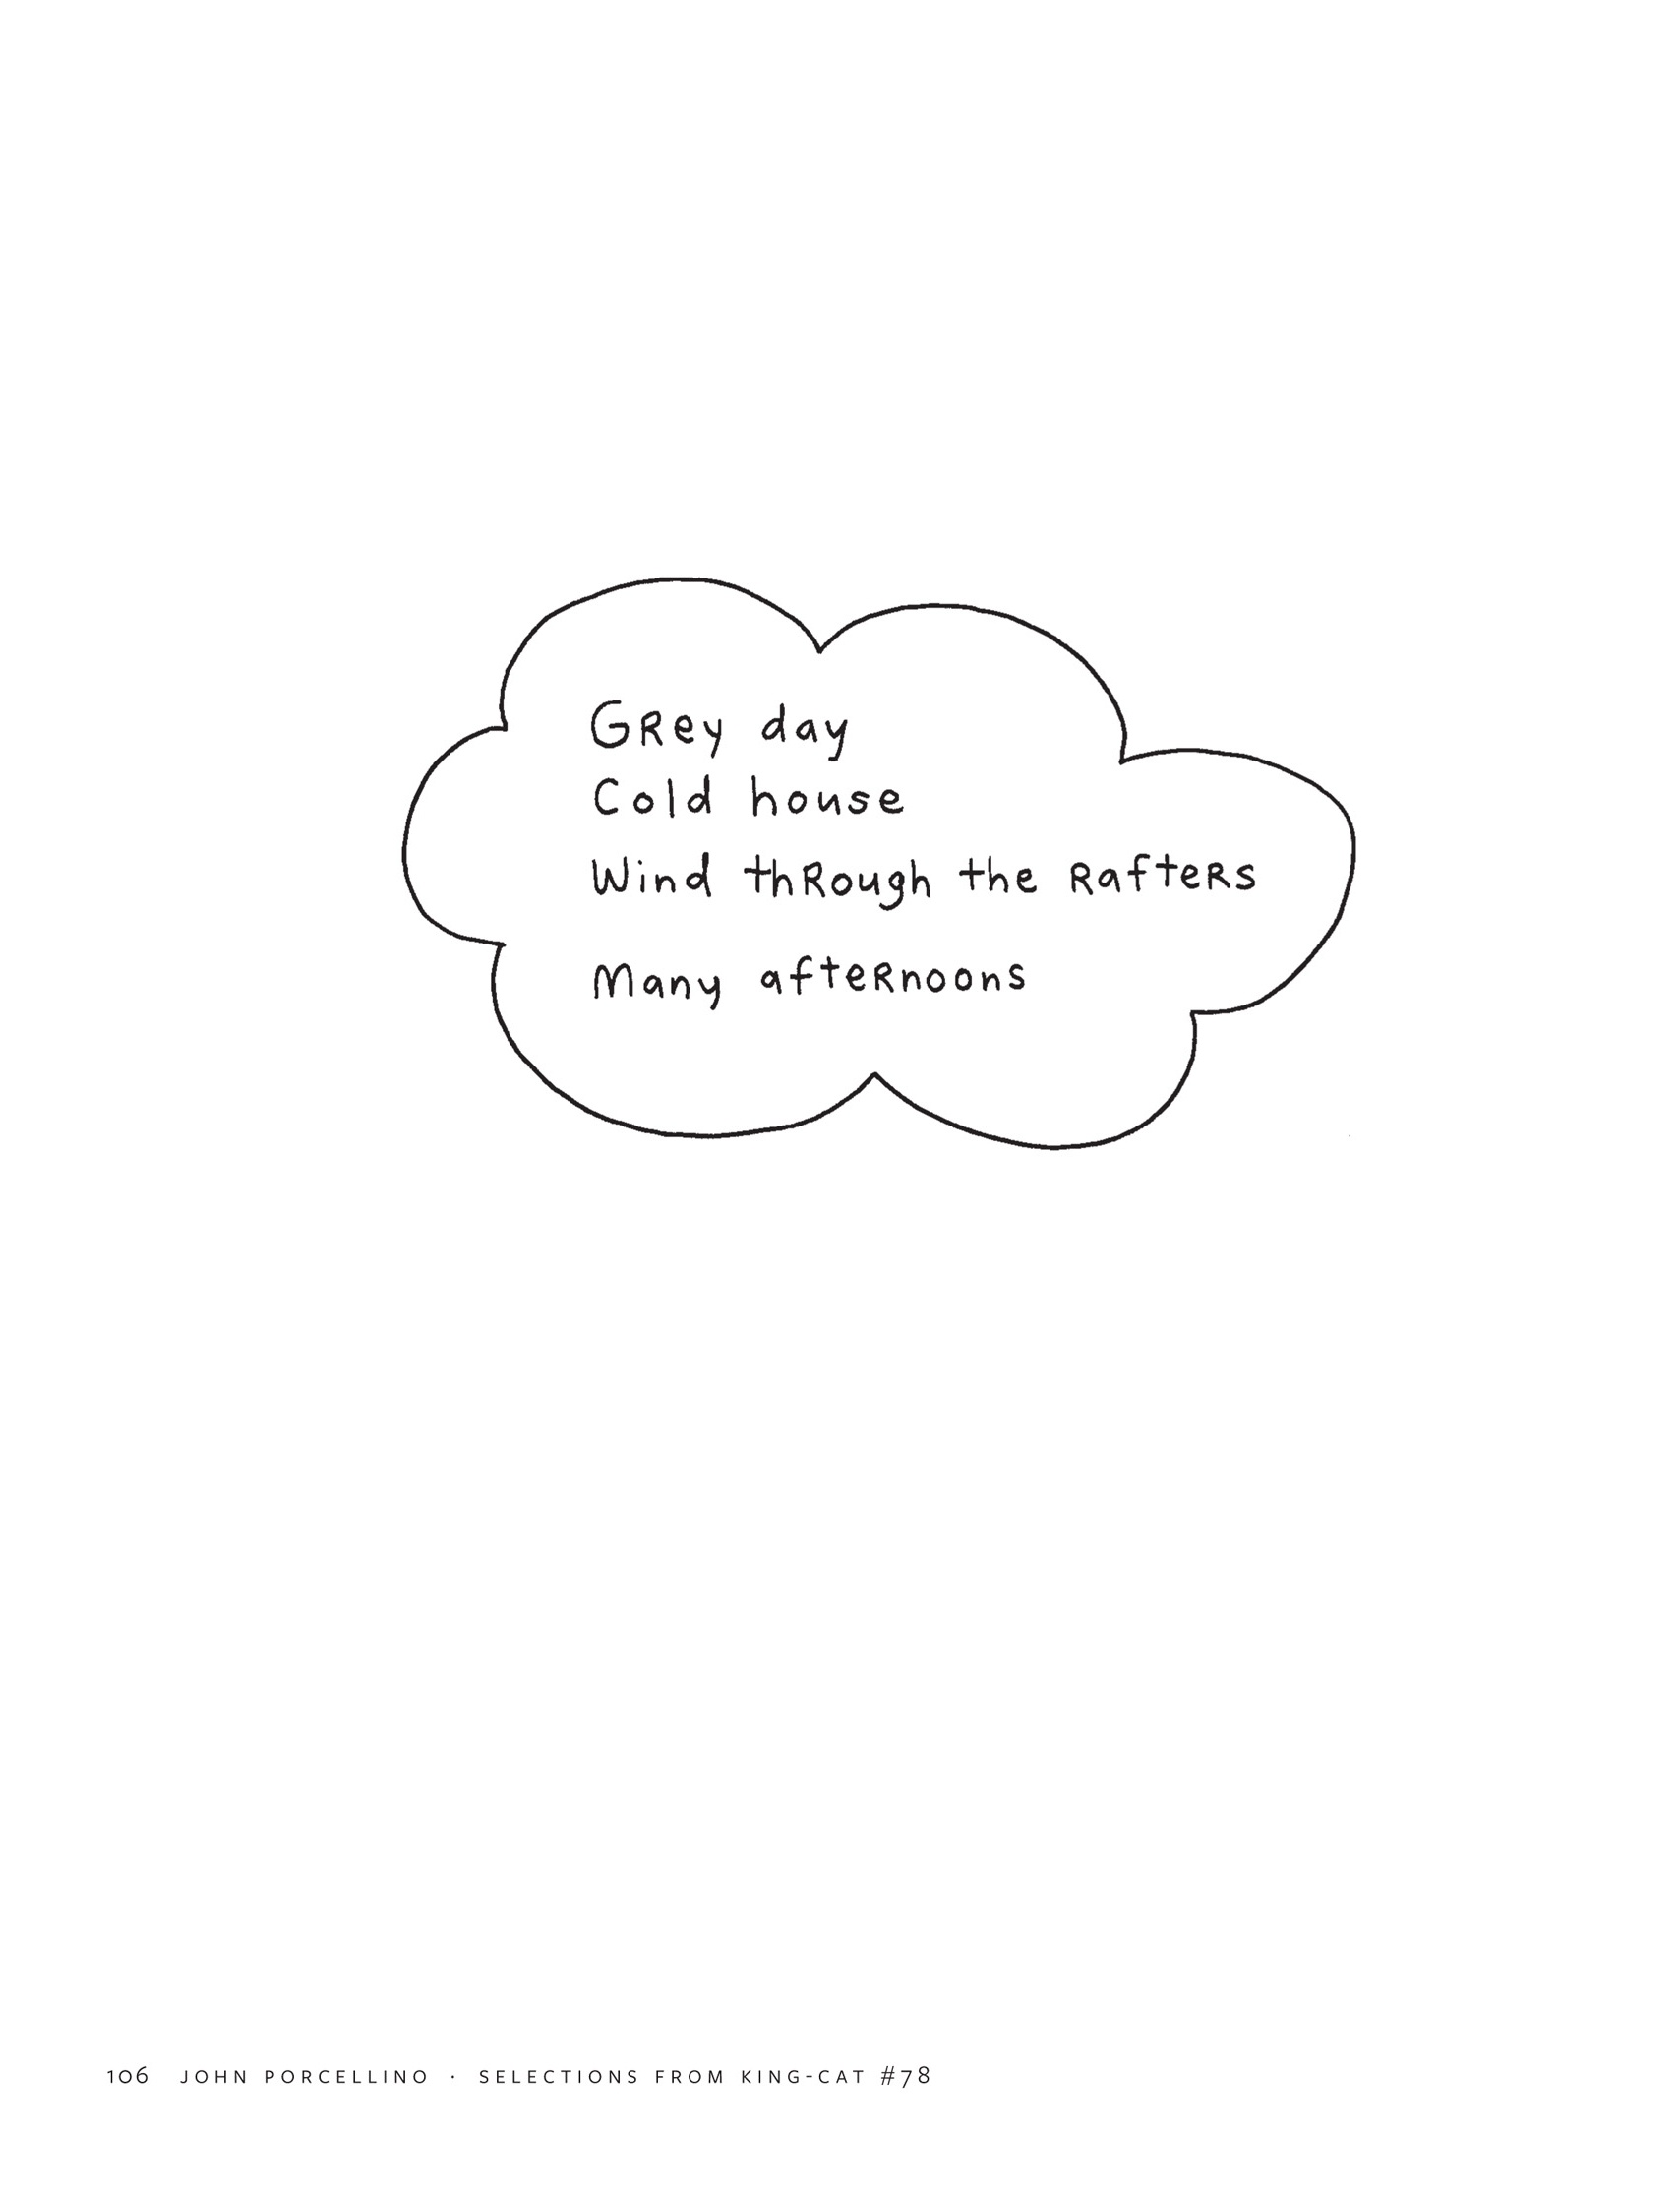 Grey day
Cold house
Wind through the Rafters
Many afternoons
106 JOHN PORCELLINO · SELECTIONS FROM KING-CAT #78